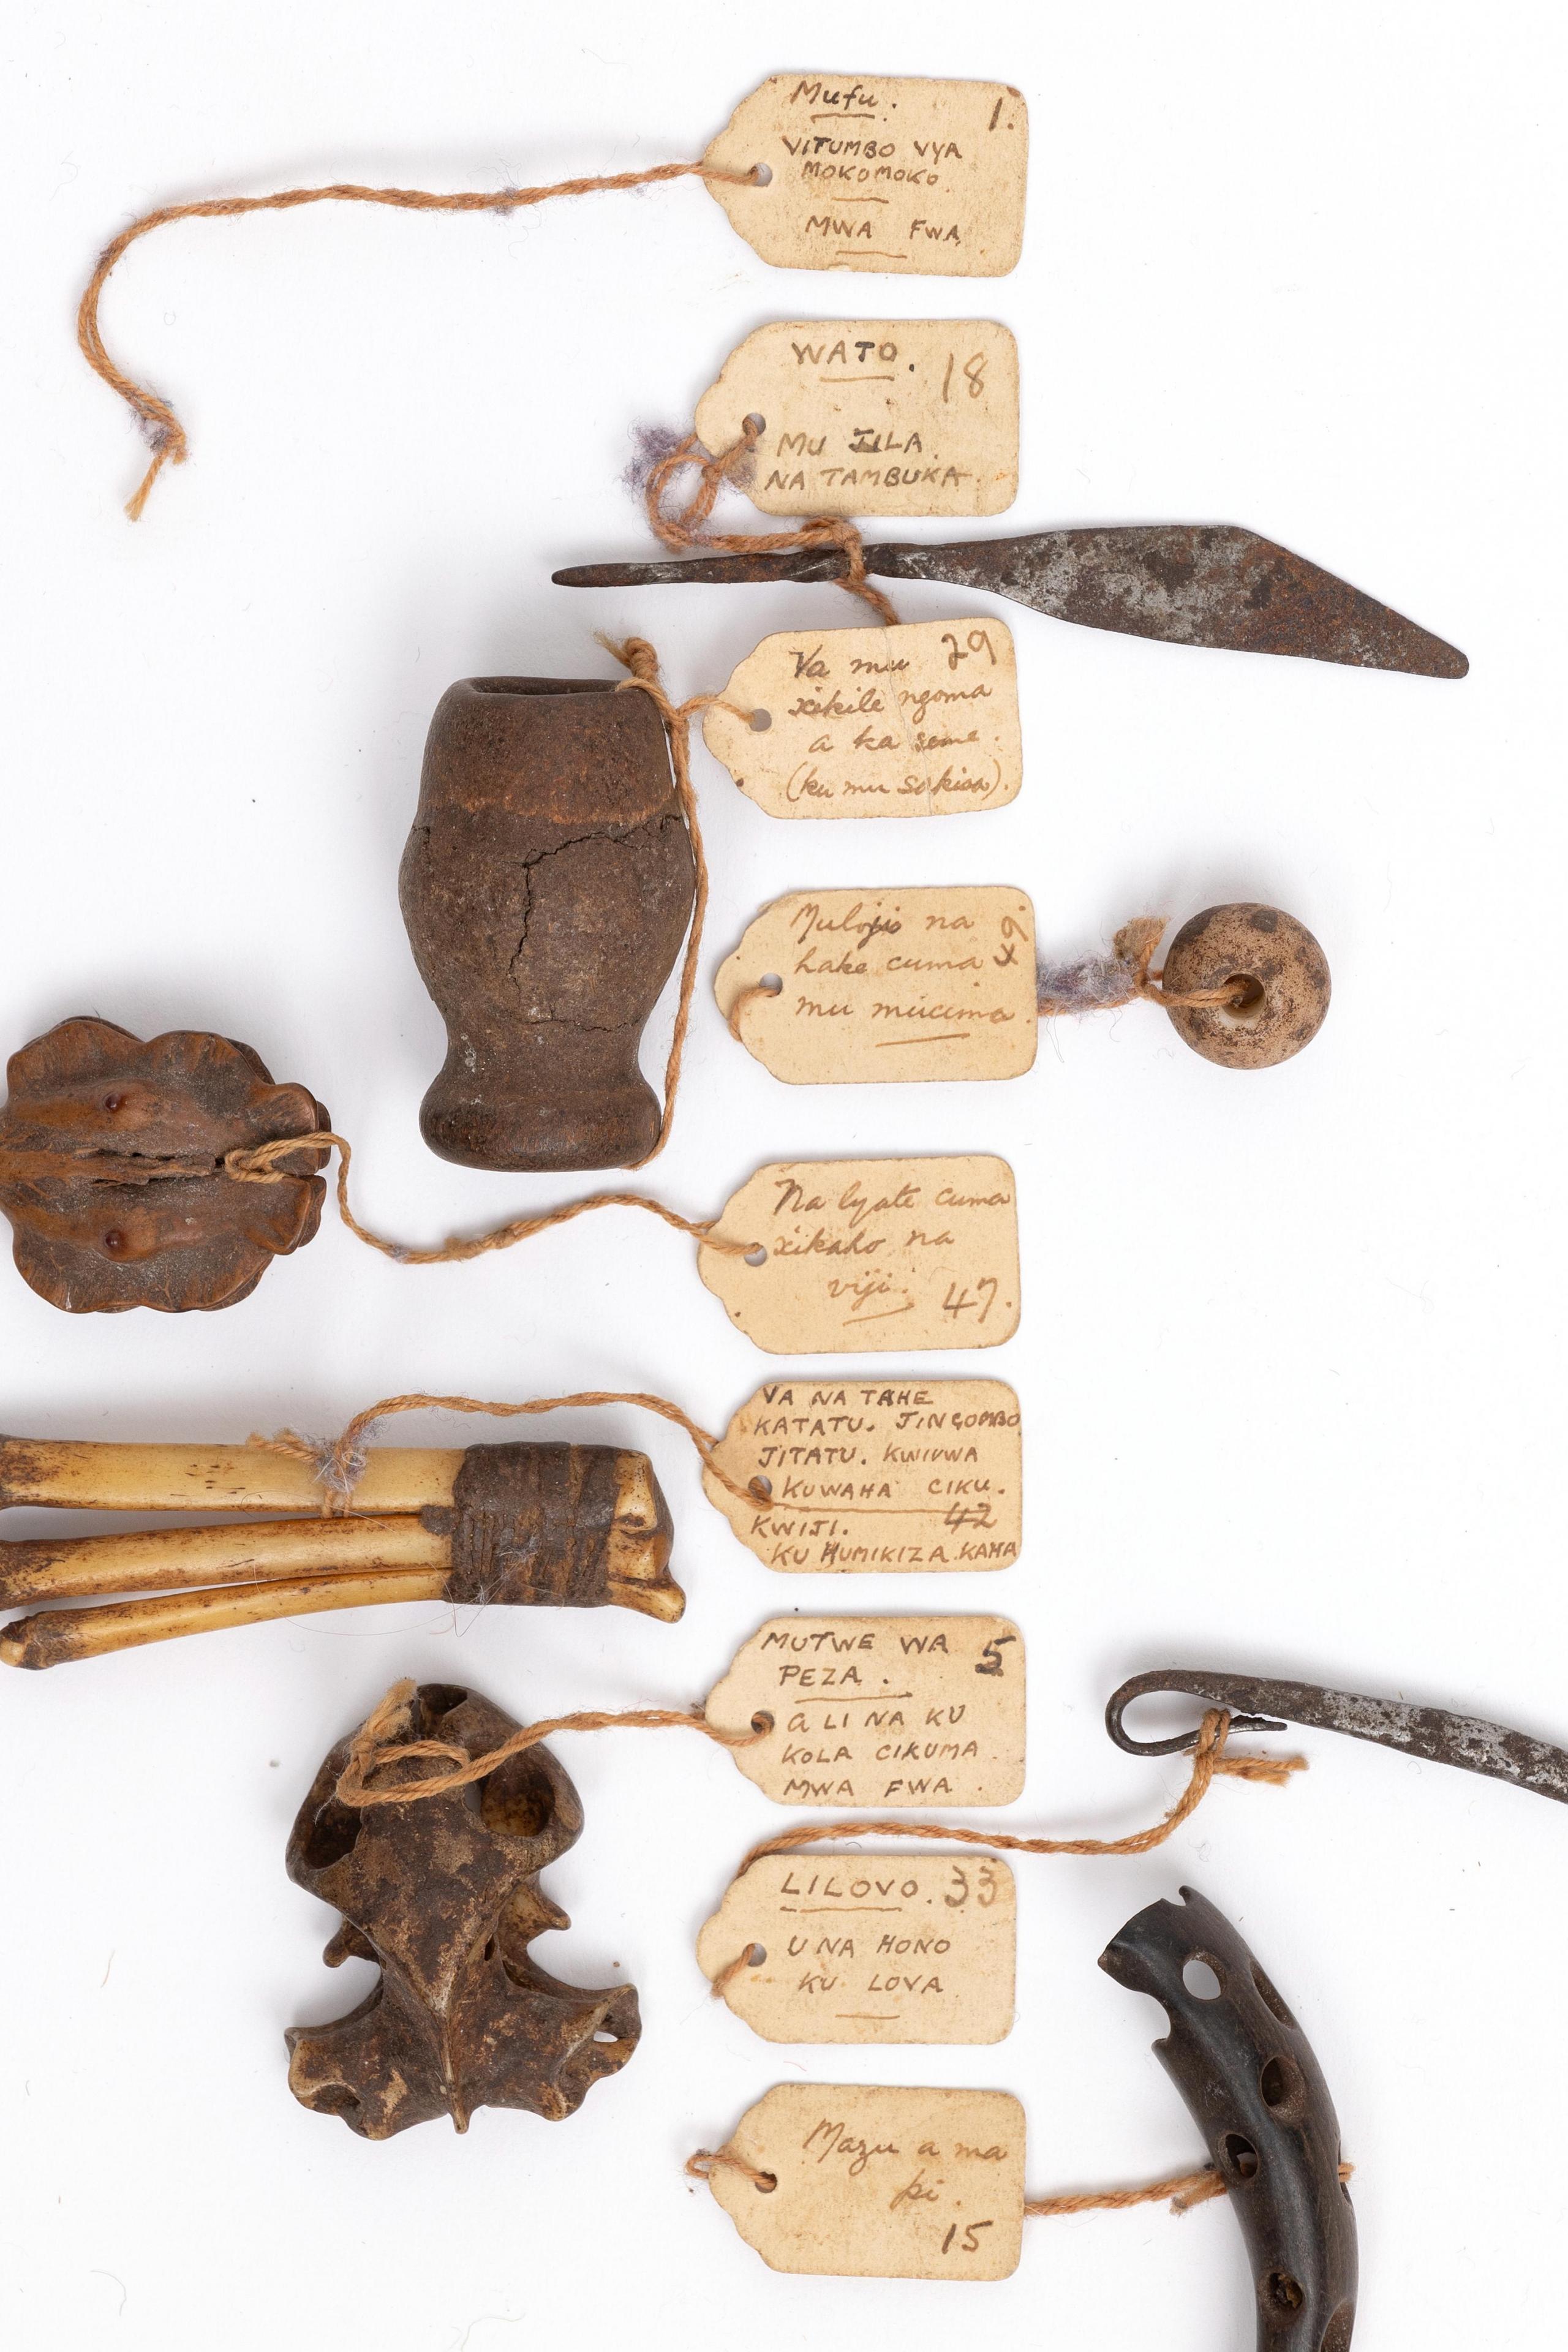 Mufu. 1.
VITUMBO VYA
MOKOMOKO
MWA FWA
WATO. 18
MU JILA
NA TAMBUKA
Va mu 29
xikile ngoma
a ka seme.
(ku mu sokisa).
Muloji na
hake cuma 49.
mu mucima.
Na lyate cuma
xikaho na
viji.
47.
VA NA TAHE
KATATU. JINGOMBO
JITATU. KWIVWA
KUWAHA CIKU.
KWIJI. 42
KU HUMIKIZA KAHA
MUTWE WA 5
PEZA.
A LI NA KU
KOLA CIKUMA
MWA FWA.
LILOVO. 33
U NA HONO
KU LOVA
Mazu a ma
pi.
15